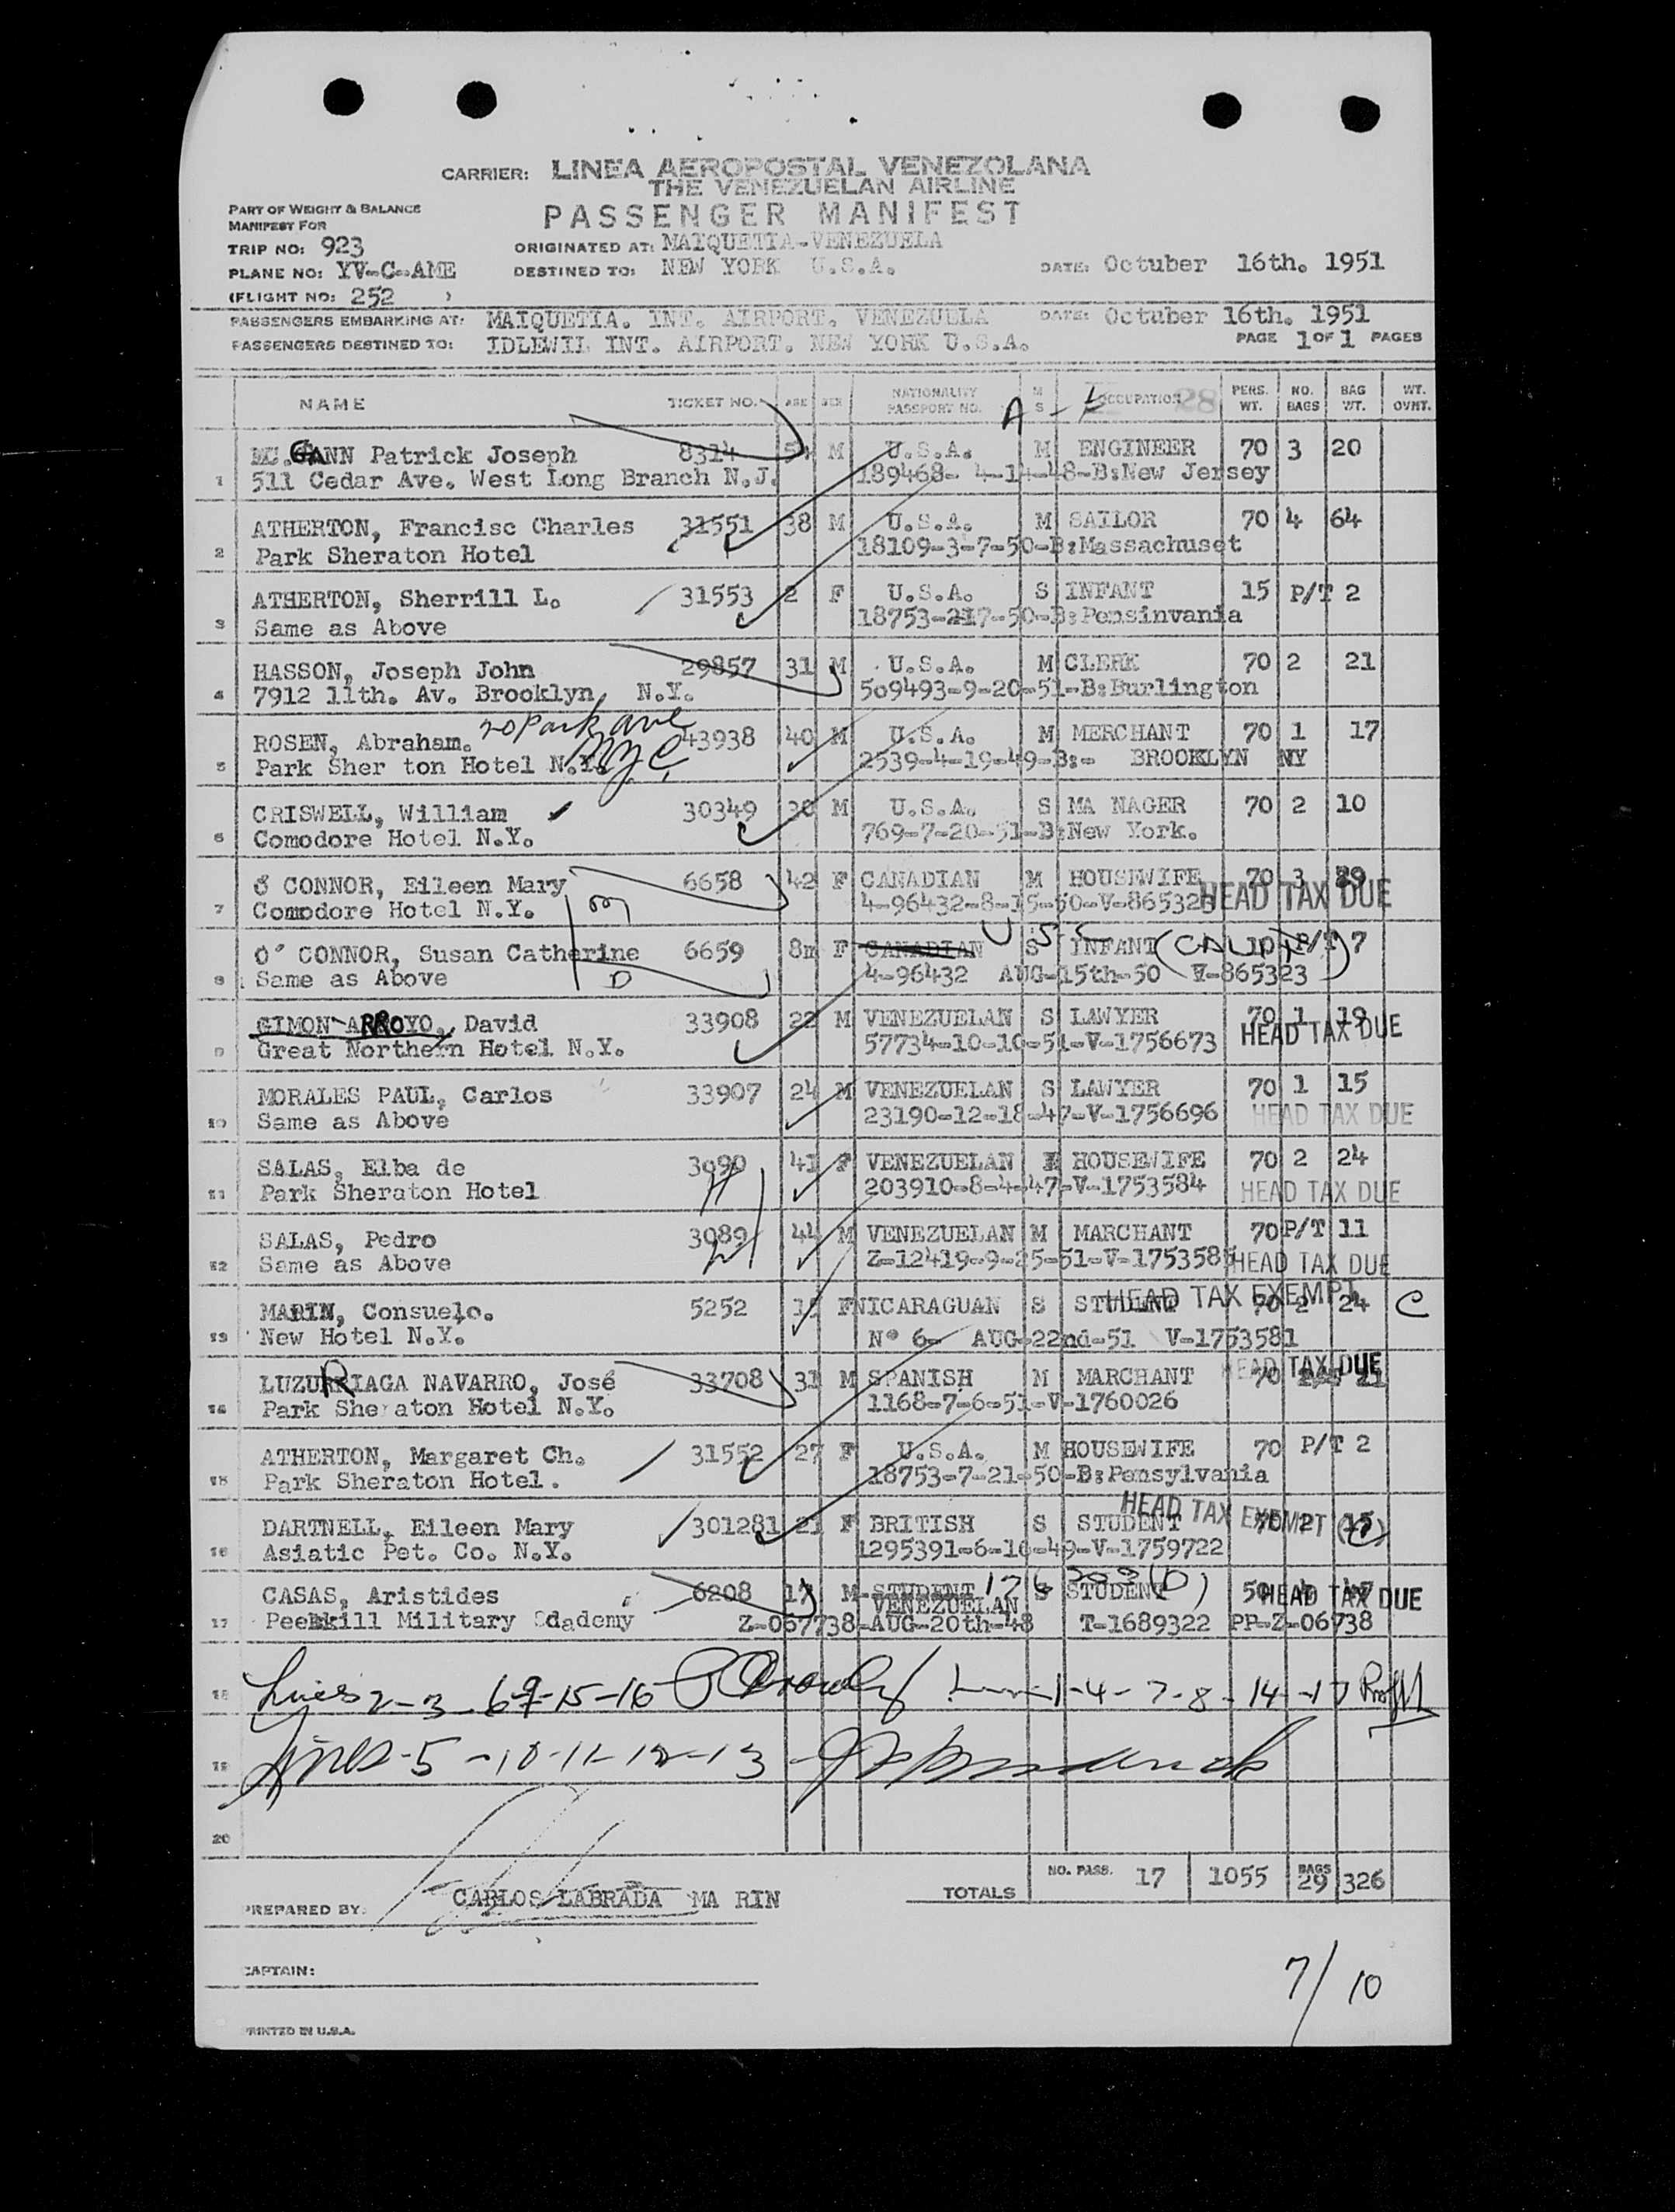 CARRIER: LINEA AEROPOSTAL VENEZOLANA
THE VENEZUELAN AIRLINE
PART OF WEIGHT & BALANCE
MANIFEST FOR
PASSENGER MANIFEST
TRIP NO: 923
ORIGINATED AT: MAIQUETIA-VENEZUELA
PLANE NO: YV-C-AME
DESTINED TO: NEW YORK U.S.A.
DATE: Octuber 16th. 1951
(FLIGHT NO: 252 )
PASSENGERS EMBARKING AT: MAIQUETIA. INT. AIRPORT. VENEZUELA DATE: Octuber 16th. 1951
PASSENGERS DESTINED TO: IDLEWIL INT. AIRPORT. NEW YORK U.S.A. PAGE 1 OF 1 PAGES
NAME TICKET NO. AGE SEX NATIONALITY PASSPORT NO. M S OCCUPATION 28 PERS. WT. NO. BAGS BAG WT. WT. OVHT.
A - L
MC.CANN Patrick Joseph 8314 M U.S.A. M ENGINEER 70 3 20
1 511 Cedar Ave. West Long Branch N.J. 189468- 4-14-48-B:New Jersey
ATHERTON, Francisc Charles 31551 38 M U.S.A. M SAILOR 70 4 64
2 Park Sheraton Hotel 18109-3-7-50-B:Massachuset
ATHERTON, Sherrill L. 31553 2 F U.S.A. S INFANT 15 P/T 2
3 Same as Above 18753-217-50-B:Pensinvania
HASSON, Joseph John 29857 31 M U.S.A. M CLERK 70 2 21
4 7912 11th. Av. Brooklyn, N.Y. 509493-9-20-51-B:Burlington
20 Park ave
ROSEN, Abraham. 43938 40 M U.S.A. M MERCHANT 70 1 17
5 Park Sher ton Hotel N.Y. NYC, 2539-4-19-49-B:- BROOKLYN NY
CRISWELL, William 30349 30 M U.S.A. S MA NAGER 70 2 10
6 Comodore Hotel N.Y. 769-7-20-51-B:New York.
O CONNOR, Eileen Mary 6658 42 F CANADIAN M HOUSEWIFE 70 3 29
7 Comodore Hotel N.Y. 4-96432-8-15-50-V-865323 HEAD TAX DUE
U S C
O' CONNOR, Susan Catherine 6659 8m F CANADIAN S INFANT 10 P/T 7
8 Same as Above D 4-96432 AUG-15th-50 V-865323
GIMON-ARROYO, David 33908 22 M VENEZUELAN S LAWYER 70 1 19
9 Great Northern Hotel N.Y. 57734-10-10-51-V-1756673 HEAD TAX DUE
MORALES PAUL, Carlos 33907 24 M VENEZUELAN S LAWYER 70 1 15
10 Same as Above 23190-12-18-47-V-1756696 HEAD TAX DUE
SALAS, Elba de 3090 41 F VENEZUELAN HOUSEWIFE 70 2 24
11 Park Sheraton Hotel 203910-8-4-47-V-1753584 HEAD TAX DUE
SALAS, Pedro 3089 44 M VENEZUELAN M MARCHANT 70 P/T 11
12 Same as Above Z-12419-9-25-51-V-1753585 HEAD TAX DUE
HEAD TAX EXEMPT
MARIN, Consuelo. 5252 F NICARAGUAN S STUDENT 70 2 24 C
13 New Hotel N.Y. Nº 6- AUG-22nd-51 V-1753581
HEAD TAX DUE
LUZURRIAGA NAVARRO, José 33708 31 M SPANISH M MARCHANT 70 21
14 Park Sheraton Hotel N.Y. 1168-7-6-51-V-1760026
ATHERTON, Margaret Ch. 31552 27 F U.S.A. M HOUSEWIFE 70 P/T 2
15 Park Sheraton Hotel. 18753-7-21-50-B:Pensylvania
HEAD TAX EXEMPT
DARTNELL, Eileen Mary 301281 21 F BRITISH S STUDENT 70 2 15
16 Asiatic Pet. Co. N.Y. 1295391-6-10-49-V-1759722
CASAS, Aristides 6208 17 M STUDENT S STUDENT 50 HEAD TAX DUE
VENEZUELAN
17 Peekkill Military Cdademy Z-067738-AUG-20th-48 T-1689322 PP-Z-06738
18 Lines 2-3-69-15-16 1-4-7-8-14-17
19 Lines-5-10-11-12-13
20
TOTALS NO. PASS. 17 1055 BAGS 29 326
PREPARED BY: CARLOS LABRADA MA RIN
CAPTAIN:
7/10
PRINTED IN U.S.A.